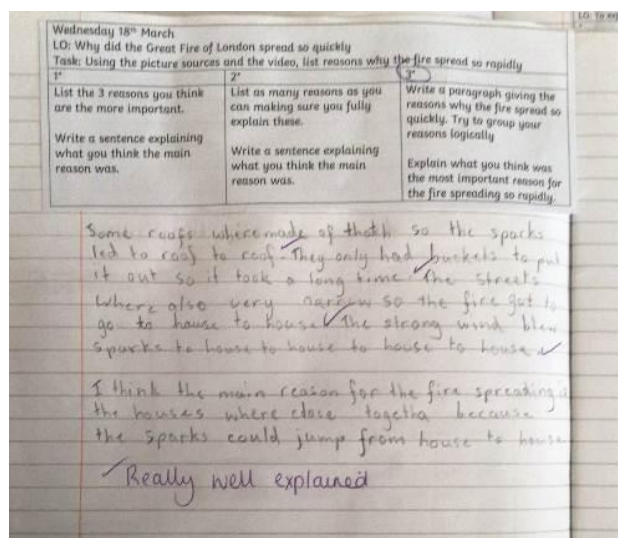 LO: To ex
Wednesday 18th March
LO: Why did the Great Fire of London spread so quickly
Task: Using the picture sources and the video, list reasons why the fire spread so rapidly
1*
List the 3 reasons you think
are the more important.
Write a sentence explaining
what you think the main
reason was.
2*
List as many reasons as you
can making sure you fully
explain these.
Write a sentence explaining
what you think the main
reason was.
3*
Write a paragraph giving the
reasons why the fire spread so
quickly. Try to group your
reasons logically
Explain what you think was
the most important reason for
the fire spreading so rapidly.
Some roofs where made of thath so the sparks
led to roof to roof. They only had buckets to put
it out so it took a long time. The streets
where also very narrow so the fire got to
go to house to house. The strong wind blew
sparks to house to house to house to house.
I think the main reason for the fire spreading is
the houses where close togetha because
the sparks could jump from house to house
Really well explained